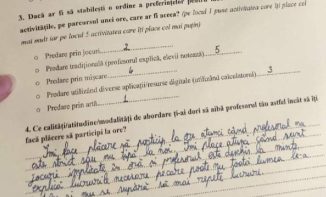 3. Dacă ar fi să stabilești o ordine a preferințelor pentru
activitățile, pe parcursul unei ore, care ar fi aceea? (pe locul 1 pune activitatea care îți place cel
mai mult iar pe locul 5 activitatea care îți place cel mai puțin)
o Predare prin jocuri 2
o Predare tradițională (profesorul explică, elevii notează) 5
o Predare prin mișcare 4
o Predare utilizând diverse aplicații/resurse digitale (utilizând calculatorul) 3
o Predare prin artă 1
4. Ce calități/atitudine/modalități de abordare ți-ai dori să aibă profesorul tău astfel încât să îți
facă plăcere să participi la ore?
Îmi face plăcere să particip la ore atunci când profesorul nu
este strict sau nu țipă la noi. Îmi place atunci când sunt
jocuri implicate în oră și profesorul este deschis la minte,
explică lucrurile necesare pe care poate nu toată lumea le-a
și nu se supără să mai repete lucruri.